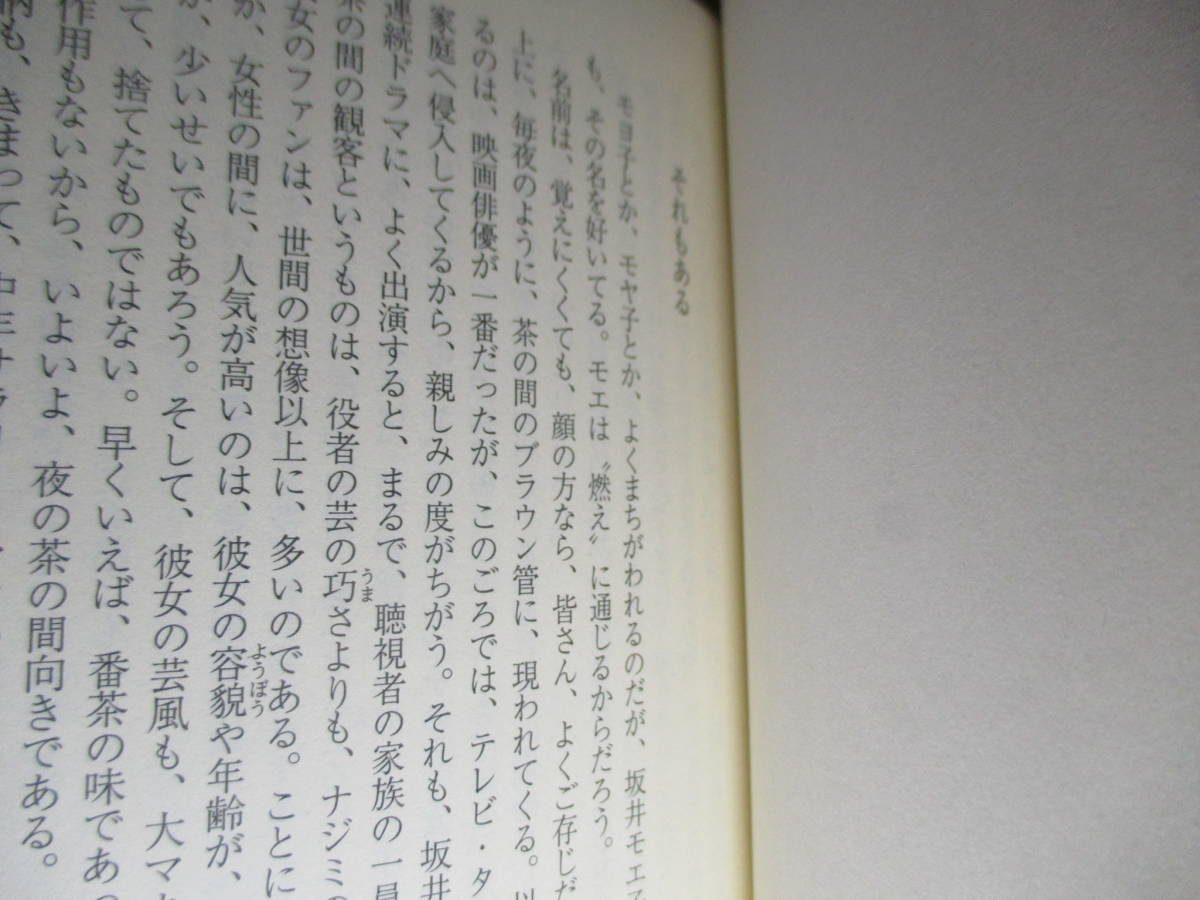 それもある
モヨ子とか、モヤ子とか、よくまちがわれるのだが、坂井モエ子
も、その名を好いてる。モエは〝燃え〟に通じるからだろう。
名前は、覚えにくくても、顔の方なら、皆さん、よくご存じだ
上に、毎夜のように、茶の間のブラウン管に、現われてくる。以
るのは、映画俳優が一番だったが、このごろでは、テレビ・タ
家庭へ侵入してくるから、親しみの度がちがう。それも、坂井
連続ドラマに、よく出演すると、まるで、聴視者の家族の一員
茶の間の観客というものは、役者の芸の巧さよりも、ナジミの
女のファンは、世間の想像以上に、多いのである。ことに
か、女性の間に、人気が高いのは、彼女の容貌や年齢が、
か、少いせいでもあろう。そして、彼女の芸風も、大マ
て、捨てたものではない。早くいえば、番茶の味であっ
作用もないから、いよいよ、夜の茶の間向きである。
柄も、きまって、中年サラリ